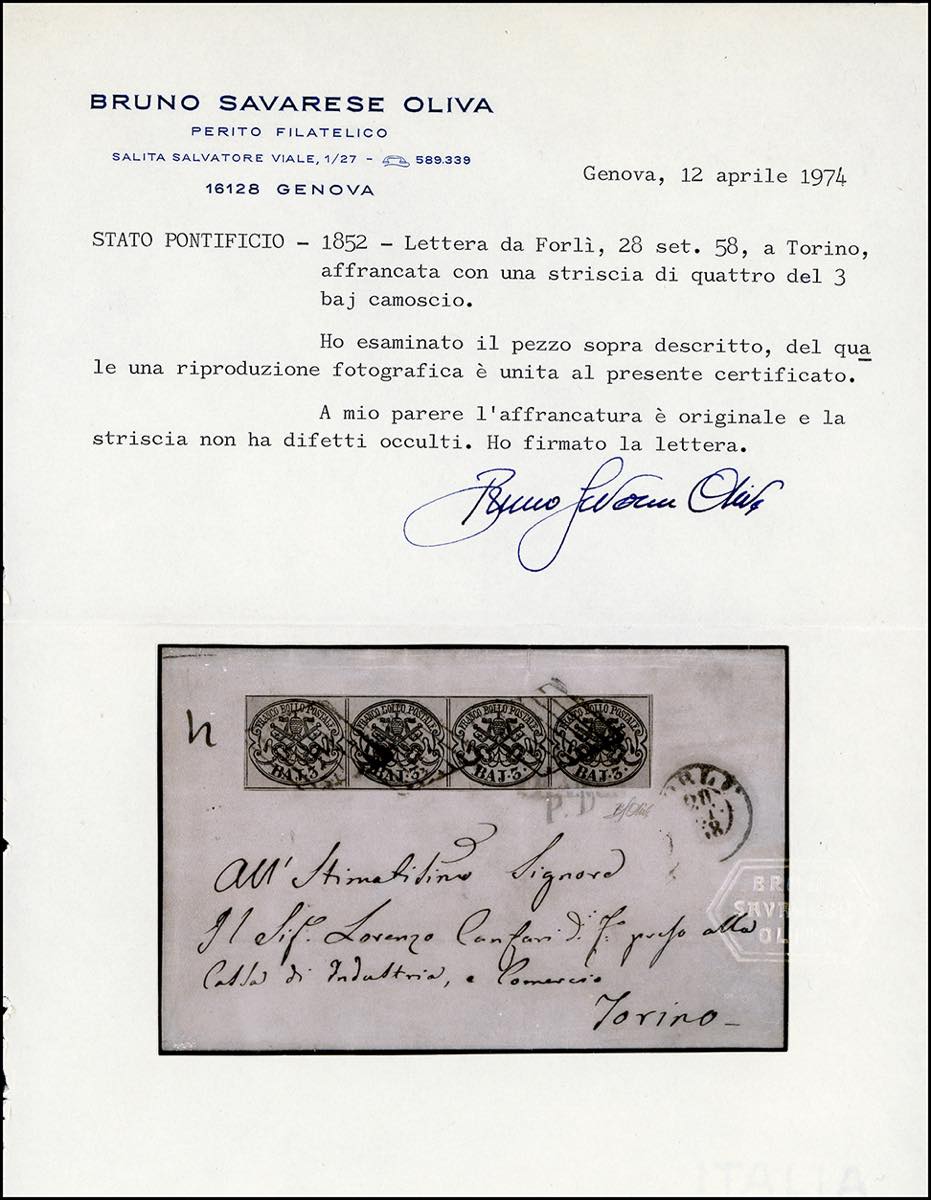 BRUNO SAVARESE OLIVA
PERITO FILATELICO
SALITA SALVATORE VIALE, 1/27 - 589.339
16128 GENOVA
Genova, 12 aprile 1974
STATO PONTIFICIO - 1852 - Lettera da Forlì, 28 set. 58, a Torino,
affrancata con una striscia di quattro del 3
baj camoscio.
Ho esaminato il pezzo sopra descritto, del qua
le una riproduzione fotografica è unita al presente certificato.
A mio parere l'affrancatura è originale e la
striscia non ha difetti occulti. Ho firmato la lettera.
Bruno Savarese Oliva
FRANCO BOLLO POSTALE BAJ. 3. FRANCO BOLLO POSTALE BAJ. 3. FRANCO BOLLO POSTALE BAJ. 3. FRANCO BOLLO POSTALE BAJ. 3.
P. D
All' Stimatisimo Signore
Il Sig. Lorenzo di preso alla
Cassa di Industria, e Comercio
Torino
BR
SAVA
OL
ITALIA